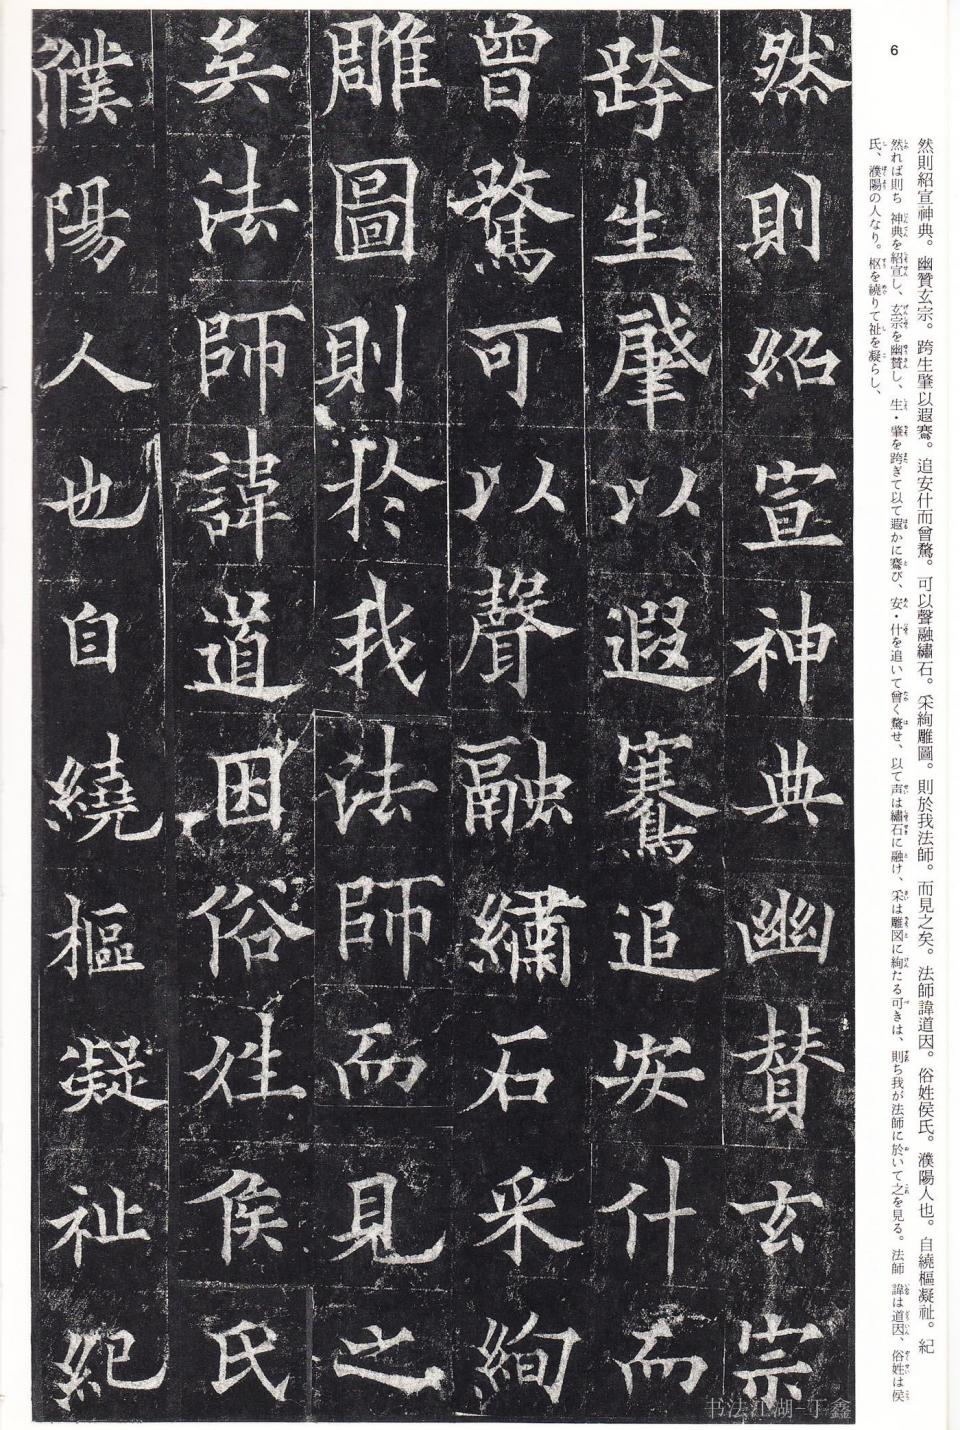 6
然則紹宣神典。幽贊玄宗。跨生肇以遐騫。追安什而曾騖。可以聲融繡石。采絢雕圖。則於我法師。而見之矣。法師諱道因。俗姓侯氏。濮陽人也。自繞樞凝祉。紀
然れば則ち神典を紹宣し、玄宗を幽賛し、生・肇を跨ぎて以て遐かに騫び、安・什を追いて曾く騖せ、以て声は繡石に融け、采は雕図に絢たる可きは、則ち我が法師に於いて之を見る。法師 諱は道因、俗姓は侯
氏、濮陽の人なり。枢を繞りて祉を凝らし、
然則紹宣神典幽賛玄宗
跨生肇以遐騫追安什而
曾騖可以聲融繡石采絢
雕圖則於我法師而見之
矣法師諱道因俗姓侯氏
濮陽人也自繞樞凝祉紀
书法江湖-丁鑫